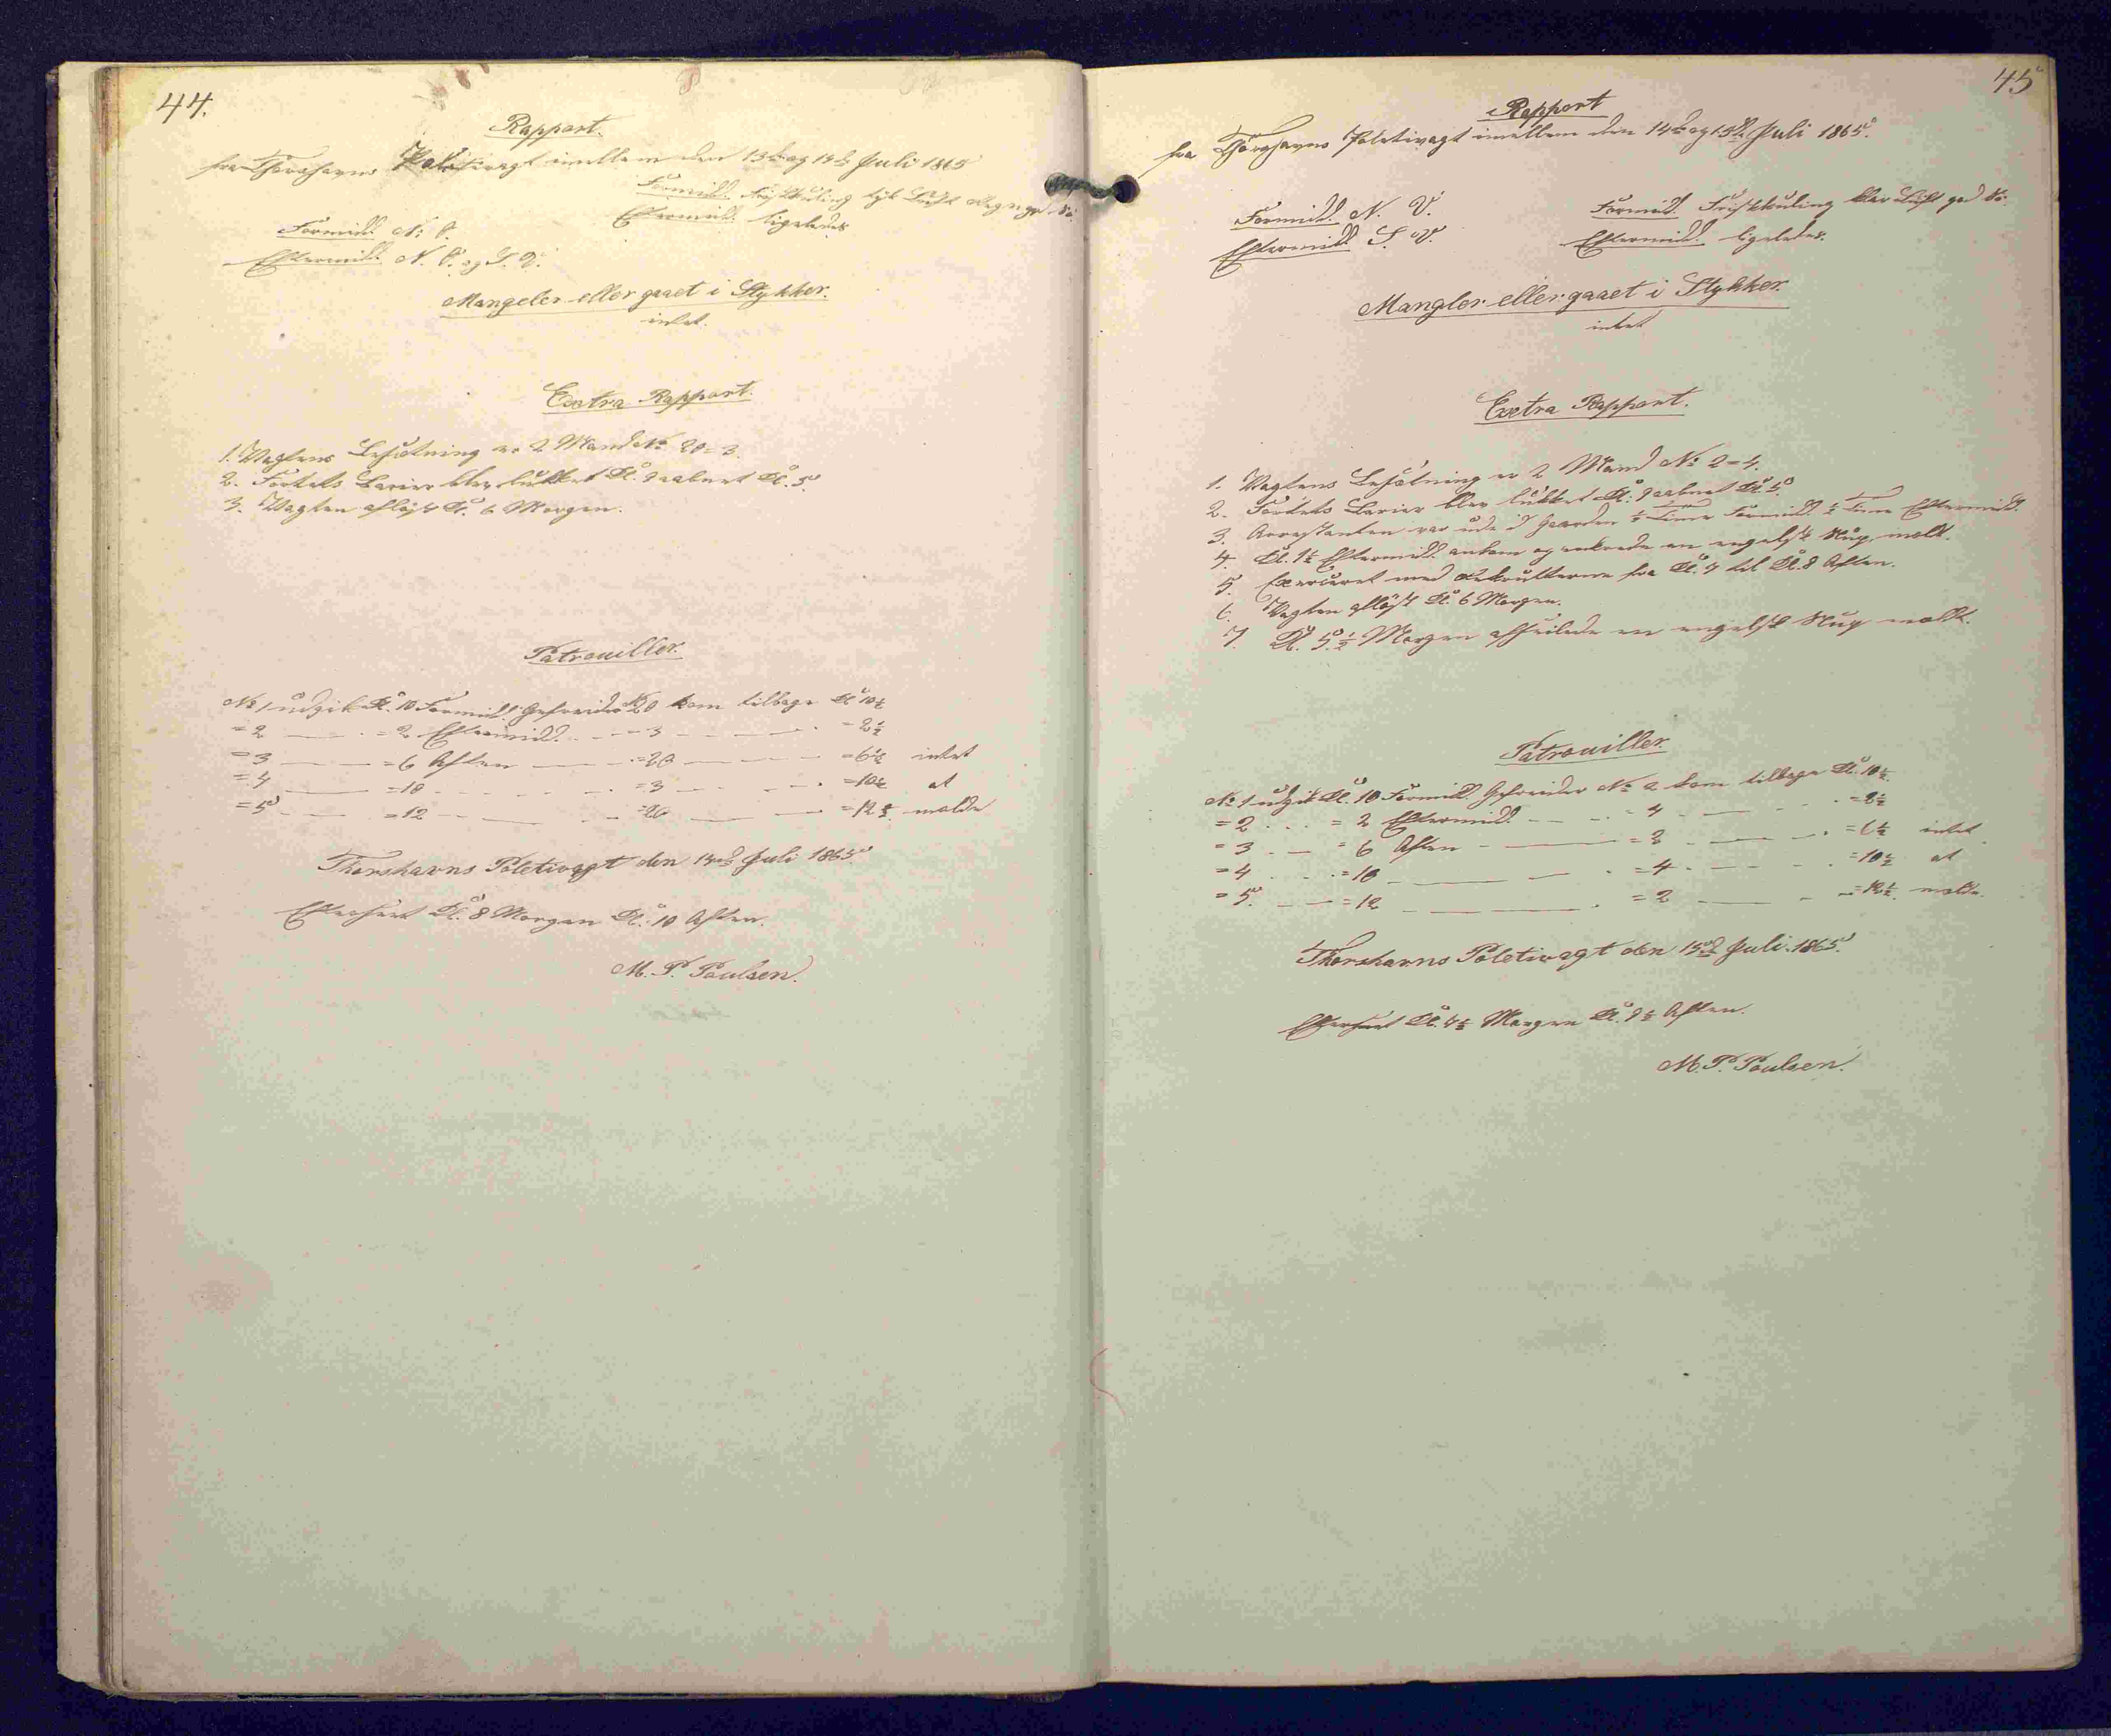 44.
Rapport.
fra Thorshavns Poletivagt imellem den 13de og 14de Juli 1865
Formidd. N. O.
Formidd. Friskkuling tyk Luft Regn god Sø.
Eftermidd. N. O. og S. V.
Eftermidd. ligeledes
Mangeler eller gaaet i Stykker.
intet.
Extra Rapport.
1. Vagtens Besætning er 2 Mand No 20 = 3.
2. Fortets Barier blev lukket Kl. 9 aabnet Kl. 5.
3. Vagten afløst Kl. 6 Morgen.
Patrouiller.
No 1 udgik Kl. 10 Formidd. Gefreider No 20 kom tilbage Kl 10½
= 2 — = 2 Eftermidd. — = 3 — = 2½
= 3 — = 6 Aften — = 20 — = 6½ intet
= 4 — = 10 — = 3 — = 10½ at
= 5 — = 12 — = 20 — = 12½ melde
Thorshavns Poletivagt den 14de Juli 1865
Efterseet Kl. 8 Morgen Kl. 10 Aften.
M. P. Poulsen.
45
Rapport
fra Thorshavns Poletivagt imellem den 14de og 15de Juli 1865.
Formidd. N. V.
Formidd. Friskkuling klar Luft god Sø.
Eftermidd. S. V.
Eftermidd. ligeledes.
Mangler eller gaaet i Stykker.
intet
Extra Rapport.
1. Vagtens Besætning er 2 Mand No 2 = 4.
2. Fortets Barier blev lukket Kl. 9 aabnet Kl. 5.
3. Arrestanten var ude i Gaarden ½ Time Formidd. ½ Time Eftermidd.
4. Kl. 1½ Eftermidd. ankom og ankrede en engelsk Slup, meldt.
5. Exerceret med Rekrutterne fra Kl. 7 til Kl. 8 Aften.
6. Vagten afløst Kl. 6 Morgen.
7. Kl. 5½ Morgen afseilede en engelsk Slup meldt.
Patrouiller.
No 1 udgik Kl. 10 Formidd. Gefreider No 2 kom tilbage Kl. 10½
= 2 — = 2 Eftermidd. — = 4 — = 2½
= 3 — = 6 Aften — = 2 — = 6½ intet
= 4 — = 10 — = 4 — = 10½ at
= 5. — = 12 — = 2 — = 12½ melde.
Thorshavns Poletivagt den 15de Juli 1865.
Efterseet Kl. 7½ Morgen Kl. 9½ Aften.
M. P. Poulsen.